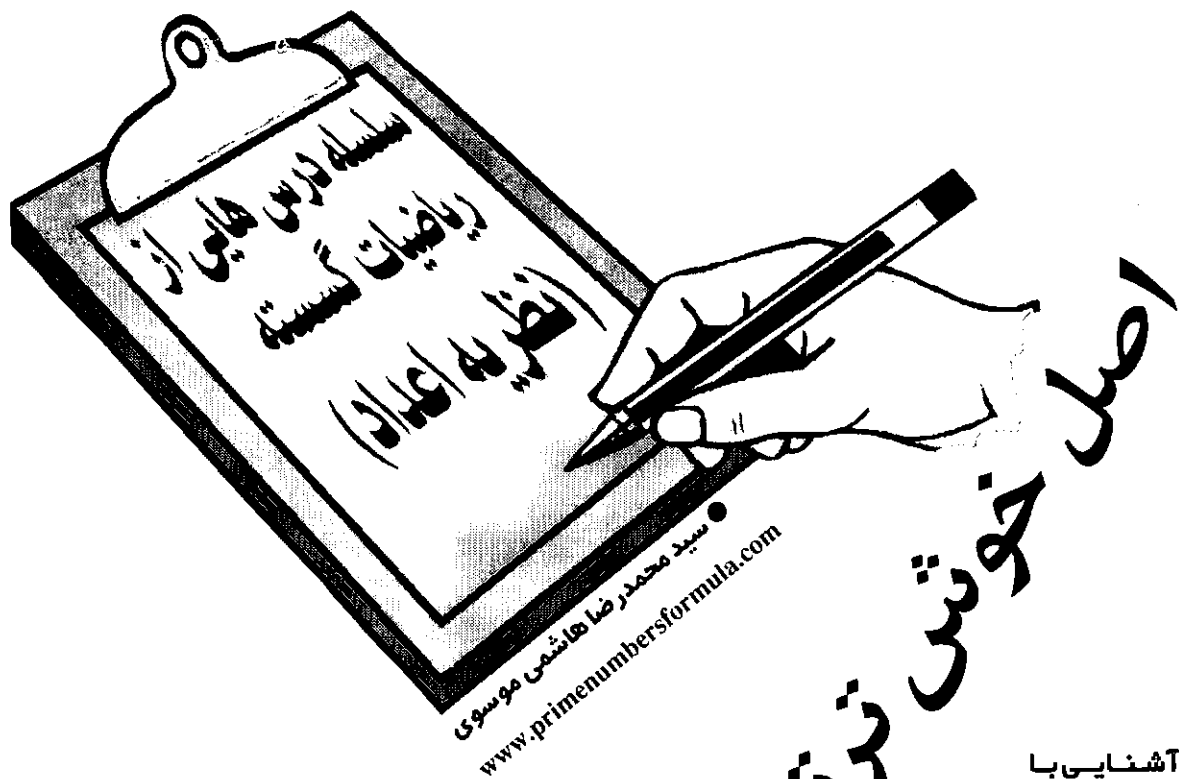 سلسله درس هایی از
ریاضیات گسسته
(نظریه اعداد)
● سید محمدرضا هاشمی موسوی
www.primenumbersformula.com
اصل خوش
آشنایی با